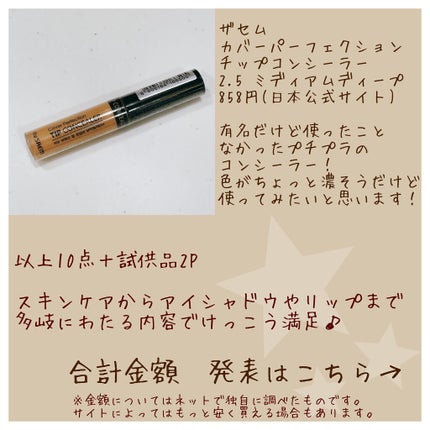 ザセム
カバーパーフェクション
チップコンシーラー
2.5 ミディアムディープ
858円(日本公式サイト)
有名だけど使ったこと
なかったプチプラの
コンシーラー!
色がちょっと濃そうだけど
使ってみたいと思います!
以上10点+試供品2P
スキンケアからアイシャドウやリップまで
多岐にわたる内容でけっこう満足♪
合計金額 発表はこちら→
※金額についてはネットで独自に調べたものです。
サイトによってはもっと安く買える場合もあります。